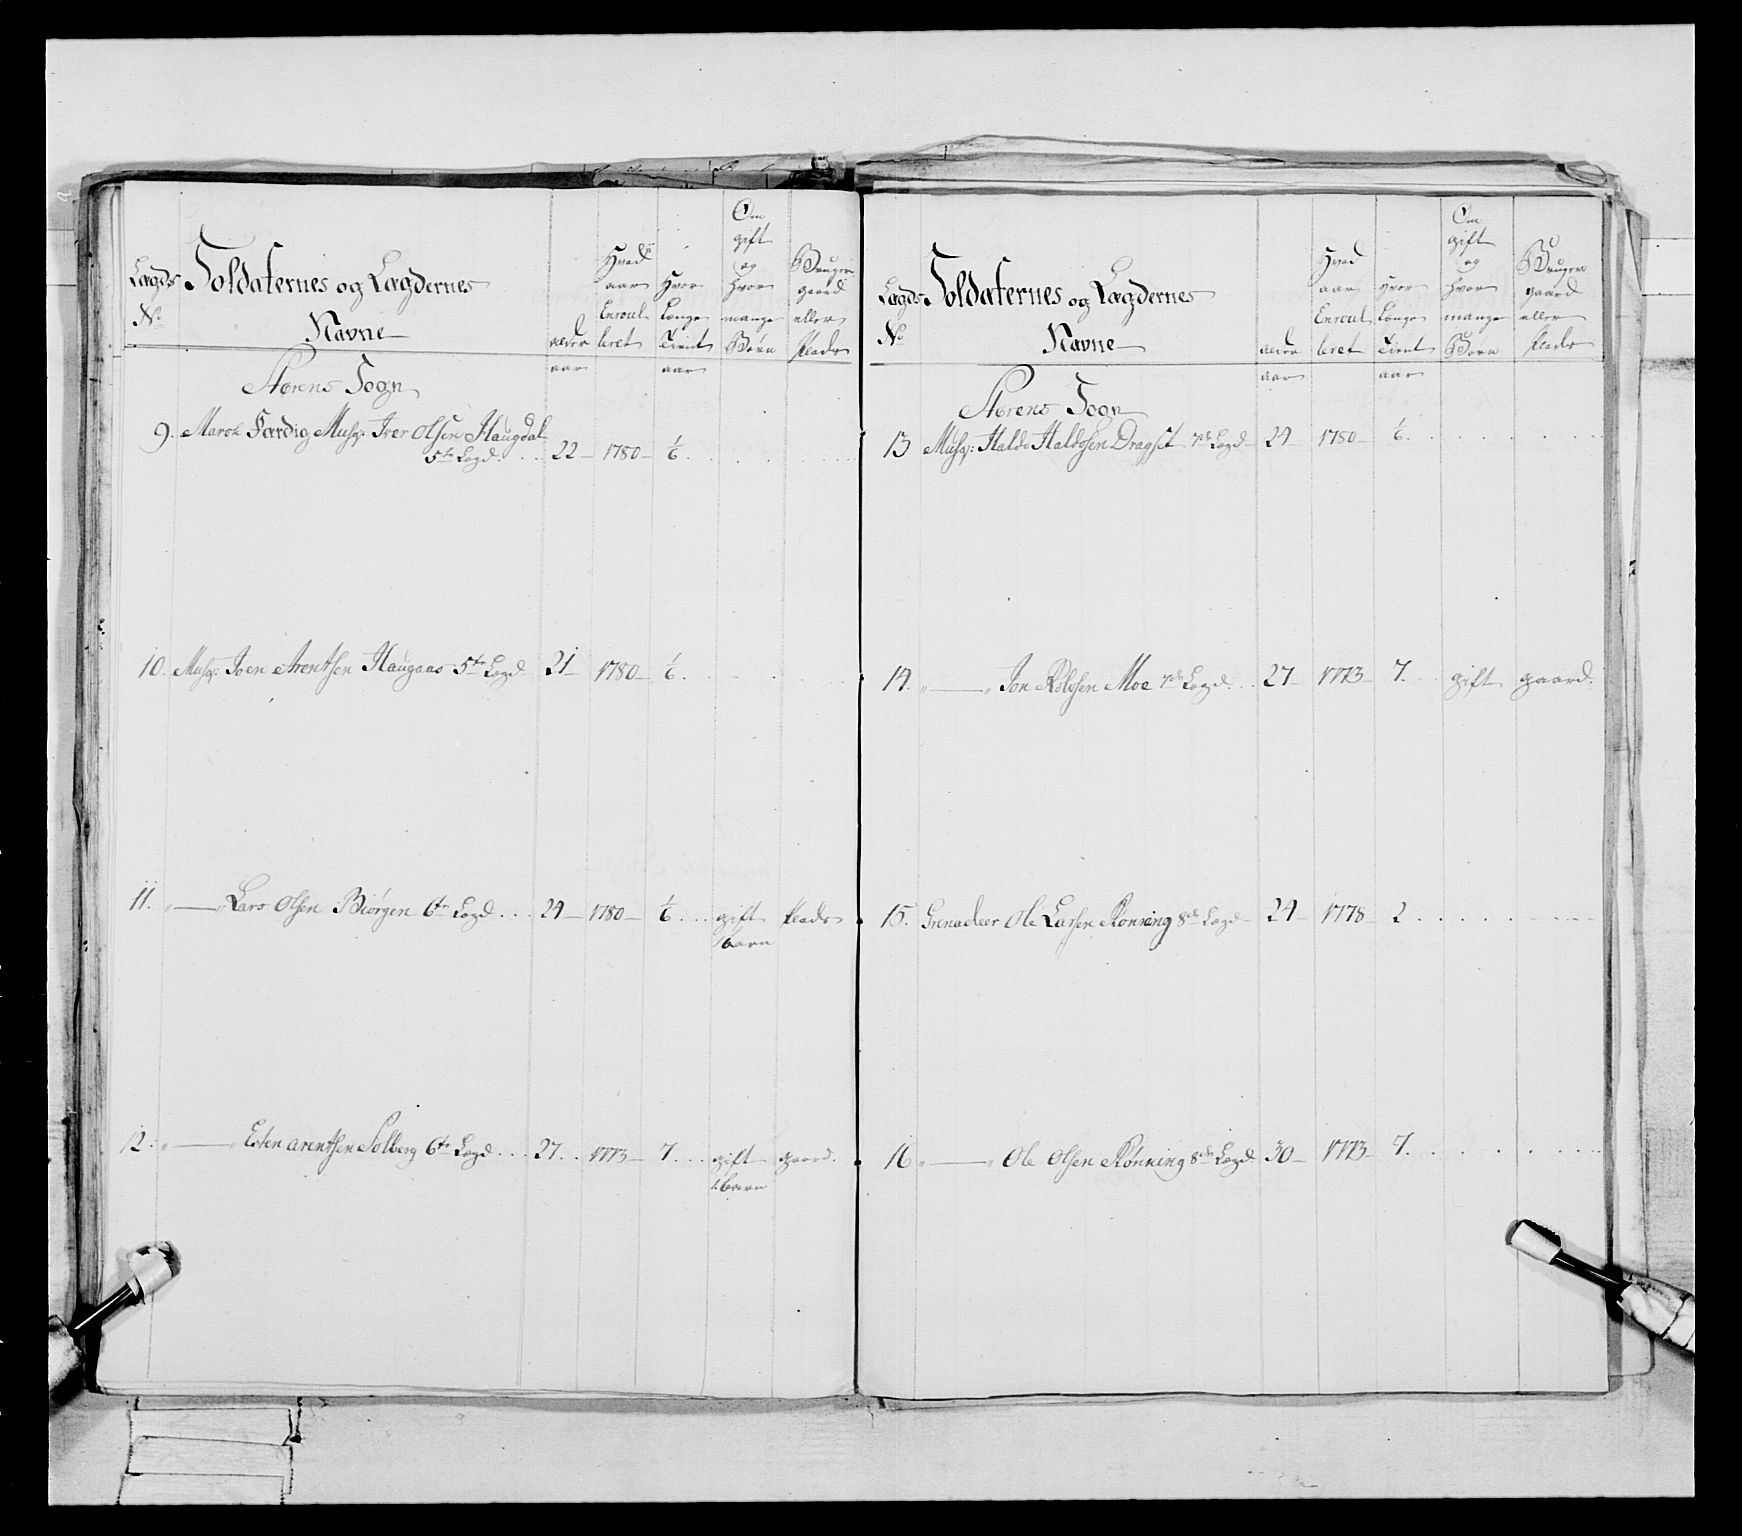 Lægds Soldaternes og Lægdernes
No
Navne
alder
aar
Hvad
aar
Enroul
leret
Hvor
Længe
Tient
aar
Om
gift
og
hvor
mange
Børn
Bruger
gaard
eller
Plads
Størens Sogn
9. March Færdig Musq: Iver Olsen Haugdal
5te Lægd. . . . 22 – 1780 – 1/6 . . . .
10. Musq: Joen Arentsen Haugaas 5te Lægd 21 – 1780 – 1/6 . . . .
11. „ — „ Lars Olsen Biørgen 6te Lægd . . . 24 – 1780 – 1/6 . . . gift Plads
1 barn
12. „ — „ Esten Arentsen Solberg 6te Lægd . . . 27 . . 1773 – 7 . . . gift gaard.
1 barn
Lægds Soldaternes og Lægdernes
No
Navne
alder
aar
Hvad
aar
Enroul
leret
Hvor
Længe
Tient
aar
Om
gift
og
hvor
mange
Børn
Bruger
gaard
eller
Plads
Størens Sogn
13 Musq: Haldo Haldosen Dragset 7de Lægd – 24 – 1780 – 1/6 . . . .
14. „ — „ Jon Rolosen Moe 7de Lægd . . . 27 – 1773 – 7. . . gift gaard.
15. Grenadeer Ole Larsen Rønning 8de Lægd – 24 – 1778 – 2 . . . .
16 „ — „ Ole Olsen Rønning 8de Lægd 30 – 1773 – 7 . . . .